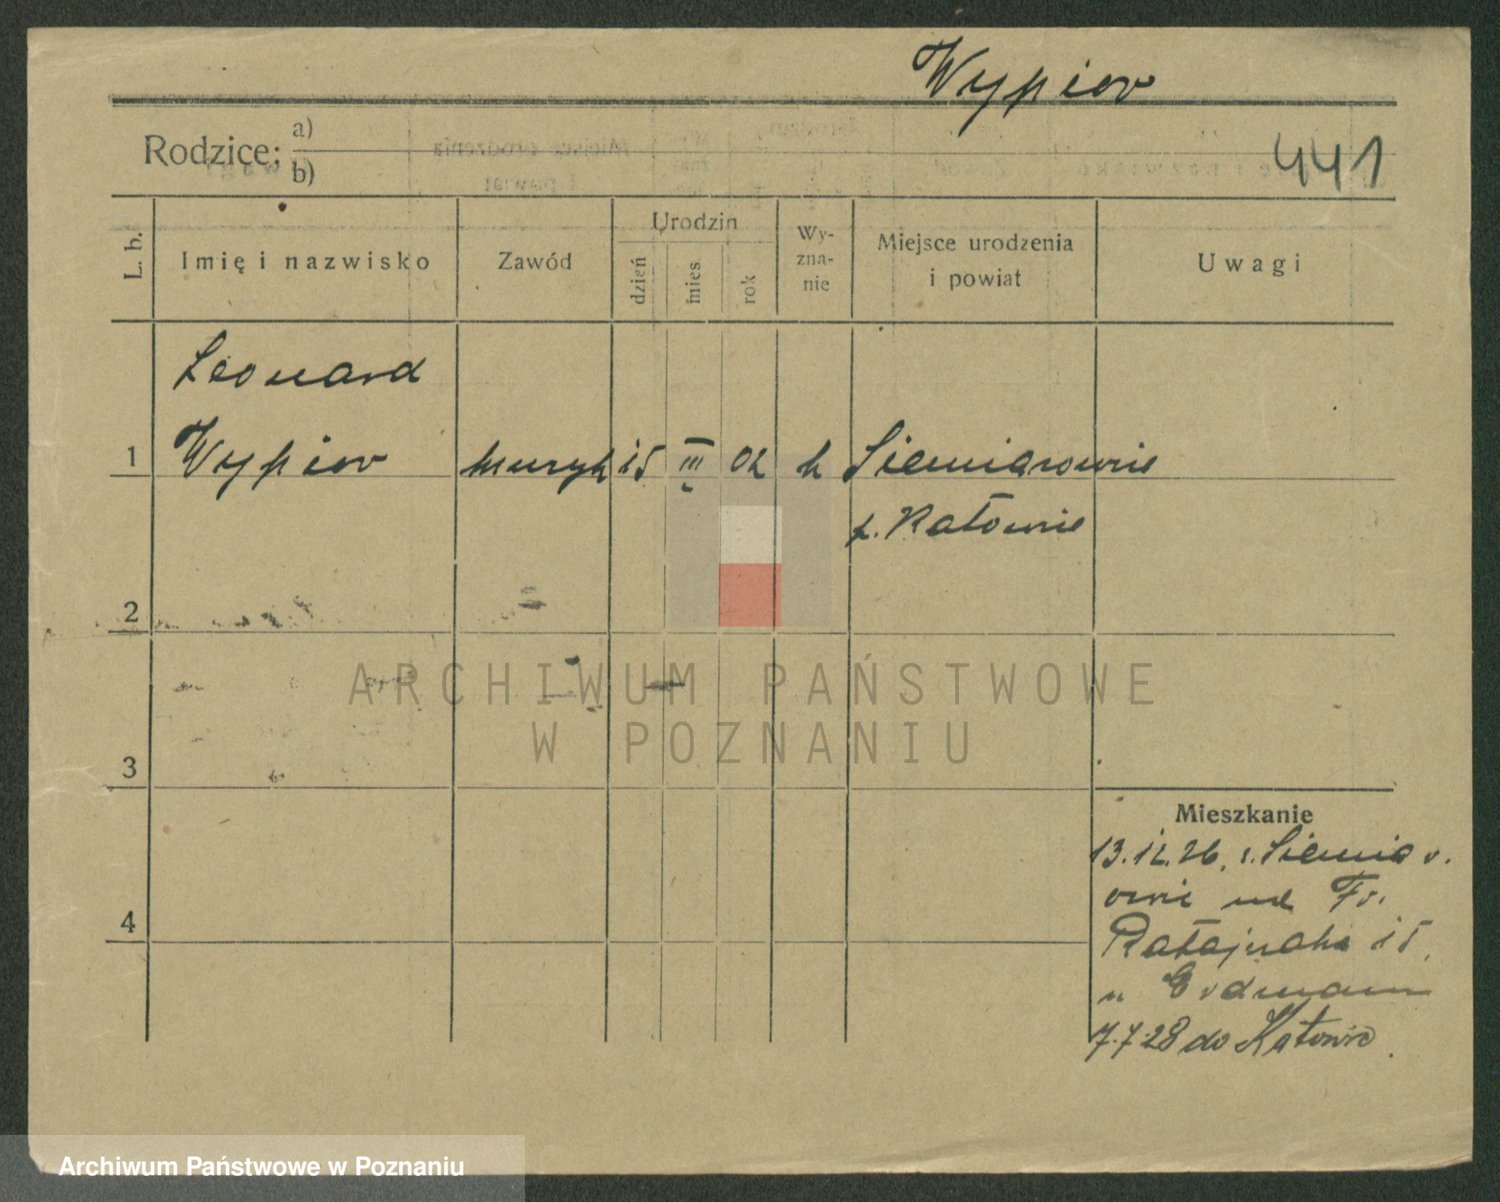 Wypior
Rodzice: a)
b)
441
L. b.
Imię i nazwisko
Zawód
Urodzin
dzień
mies.
rok
Wy-
zna-
nie
Miejsce urodzenia
i powiat
Uwagi
Leonard
1 Wypior muzyk 15 III 02 k Siemianowice
p. Katowice
2
3
4
Mieszkanie
13.12.26, z. Siemia
Fr.
Ratajczaka 15,
u Erdmann
7.7.28 do Katowic.
ARCHIWUM PAŃSTWOWE
W POZNANIU
Archiwum Państwowe w Poznaniu